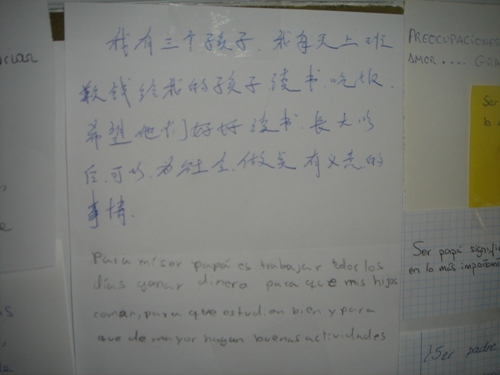 我有三个孩子.我每天上班
赚钱给我的孩子读书.吃饭.
希望他们好好读书.長大以
后.可以.为社会.做些有义意的
事情.
Para mi ser papá es trabajar todos los
días ganar dinero para que mis hijos
coman, para que estudien bien y para
que de mayor hagan buenas actividades
PREOCUPACIONES
AMOR.... GRA
Ser
Ser papá signifi
en lo más importan
¿Ser padre